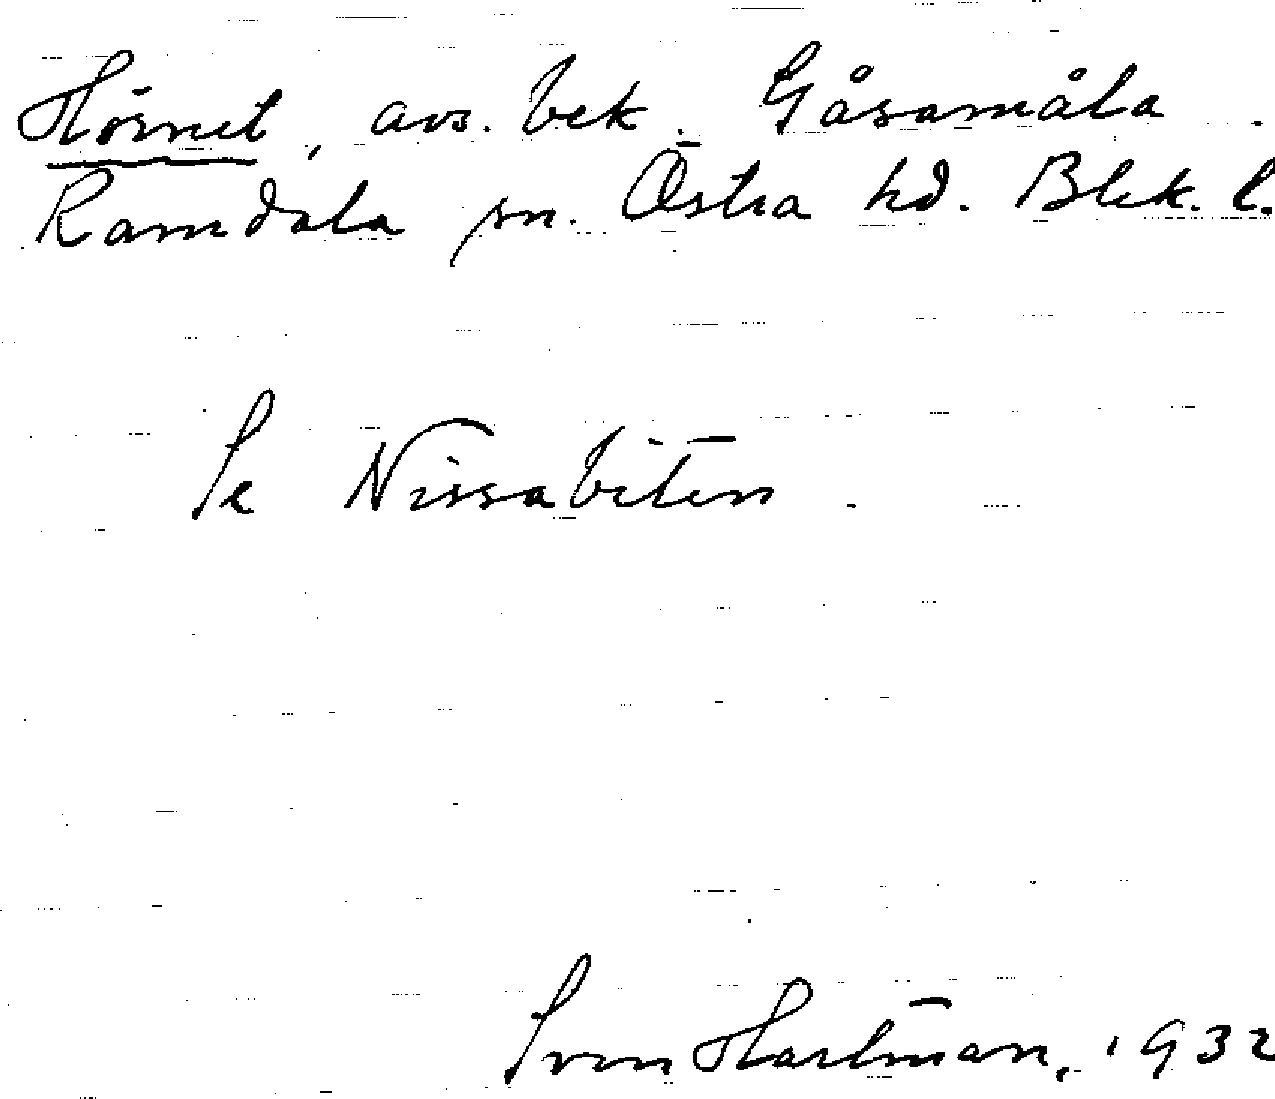 Hörnet, avs. bek. Gåsamåla.
Ramdala sn. Östra hd. Blek. l.
Se Nissabiten.
Sven Hartman, 1932